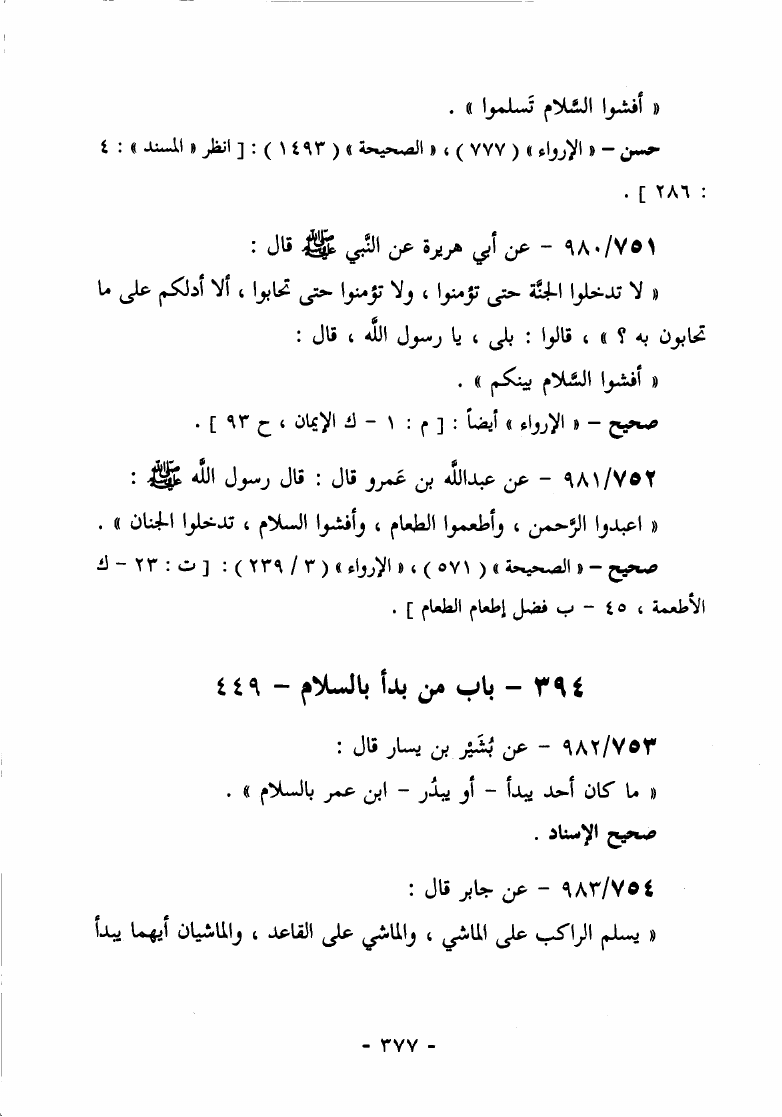 « أفشوا السَّلام تَسلموا » .
حسن – « الإرواء » ( ٧٧٧ ) ، « الصحيحة » ( ١٤٩٣ ) : [ انظر « المسند » : ٤
: ٢٨٦ ] .
٩٨٠/٧٥١ – عن أبي هريرة عن النَّبي ﷺ قال :
« لا تدخلوا الجنَّة حتى تؤمنوا ، ولا تؤمنوا حتى تحابوا ، ألا أدلكم على ما
تحابون به ؟ » ، قالوا : بلى ، يا رسول اللَّه ، قال :
« أفشوا السَّلام بينكم » .
صحيح – « الإرواء » أيضاً : [ م : ١ – ك الإيمان ، ح ٩٣ ] .
٩٨١/٧٥٢ – عن عبداللَّه بن عَمرو قال : قال رسول اللَّه ﷺ :
« اعبدوا الرَّحمن ، وأطعموا الطعام ، وأفشوا السلام ، تدخلوا الجنان » .
صحيح – « الصحيحة » ( ٥٧١ ) ، « الإرواء » ( ٣ / ٢٣٩ ) : [ ت : ٢٣ – ك
الأطعمة ، ٤٥ – ب فضل إطعام الطعام ] .
٣٩٤ – باب من بدأ بالسلام – ٤٤٩
٩٨٢/٧٥٣ – عن بُشَيْر بن يسار قال :
« ما كان أحد يبدأ – أو يبدُر – ابن عمر بالسلام » .
صحيح الإسناد .
٩٨٣/٧٥٤ – عن جابر قال :
« يسلم الراكب على الماشي ، والماشي على القاعد ، والماشيان أيهما يبدأ
- ٣٧٧ -